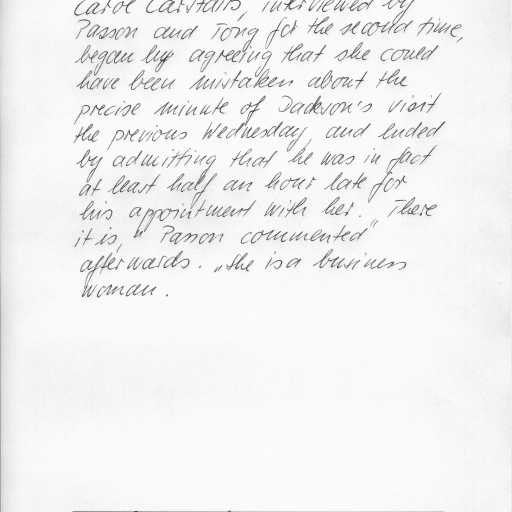 Carol Carstairs, interviewed by
Passon and Tong for the second time,
began by agreeing that she could
have been mistaken about the
precise minute of Dackson's visit
the previous Wednesday, and ended
by admitting that he was in fact
at least half an hour late for
his appointment with her. "There
it is," Passon commented
afterwards. "She is a business
woman.